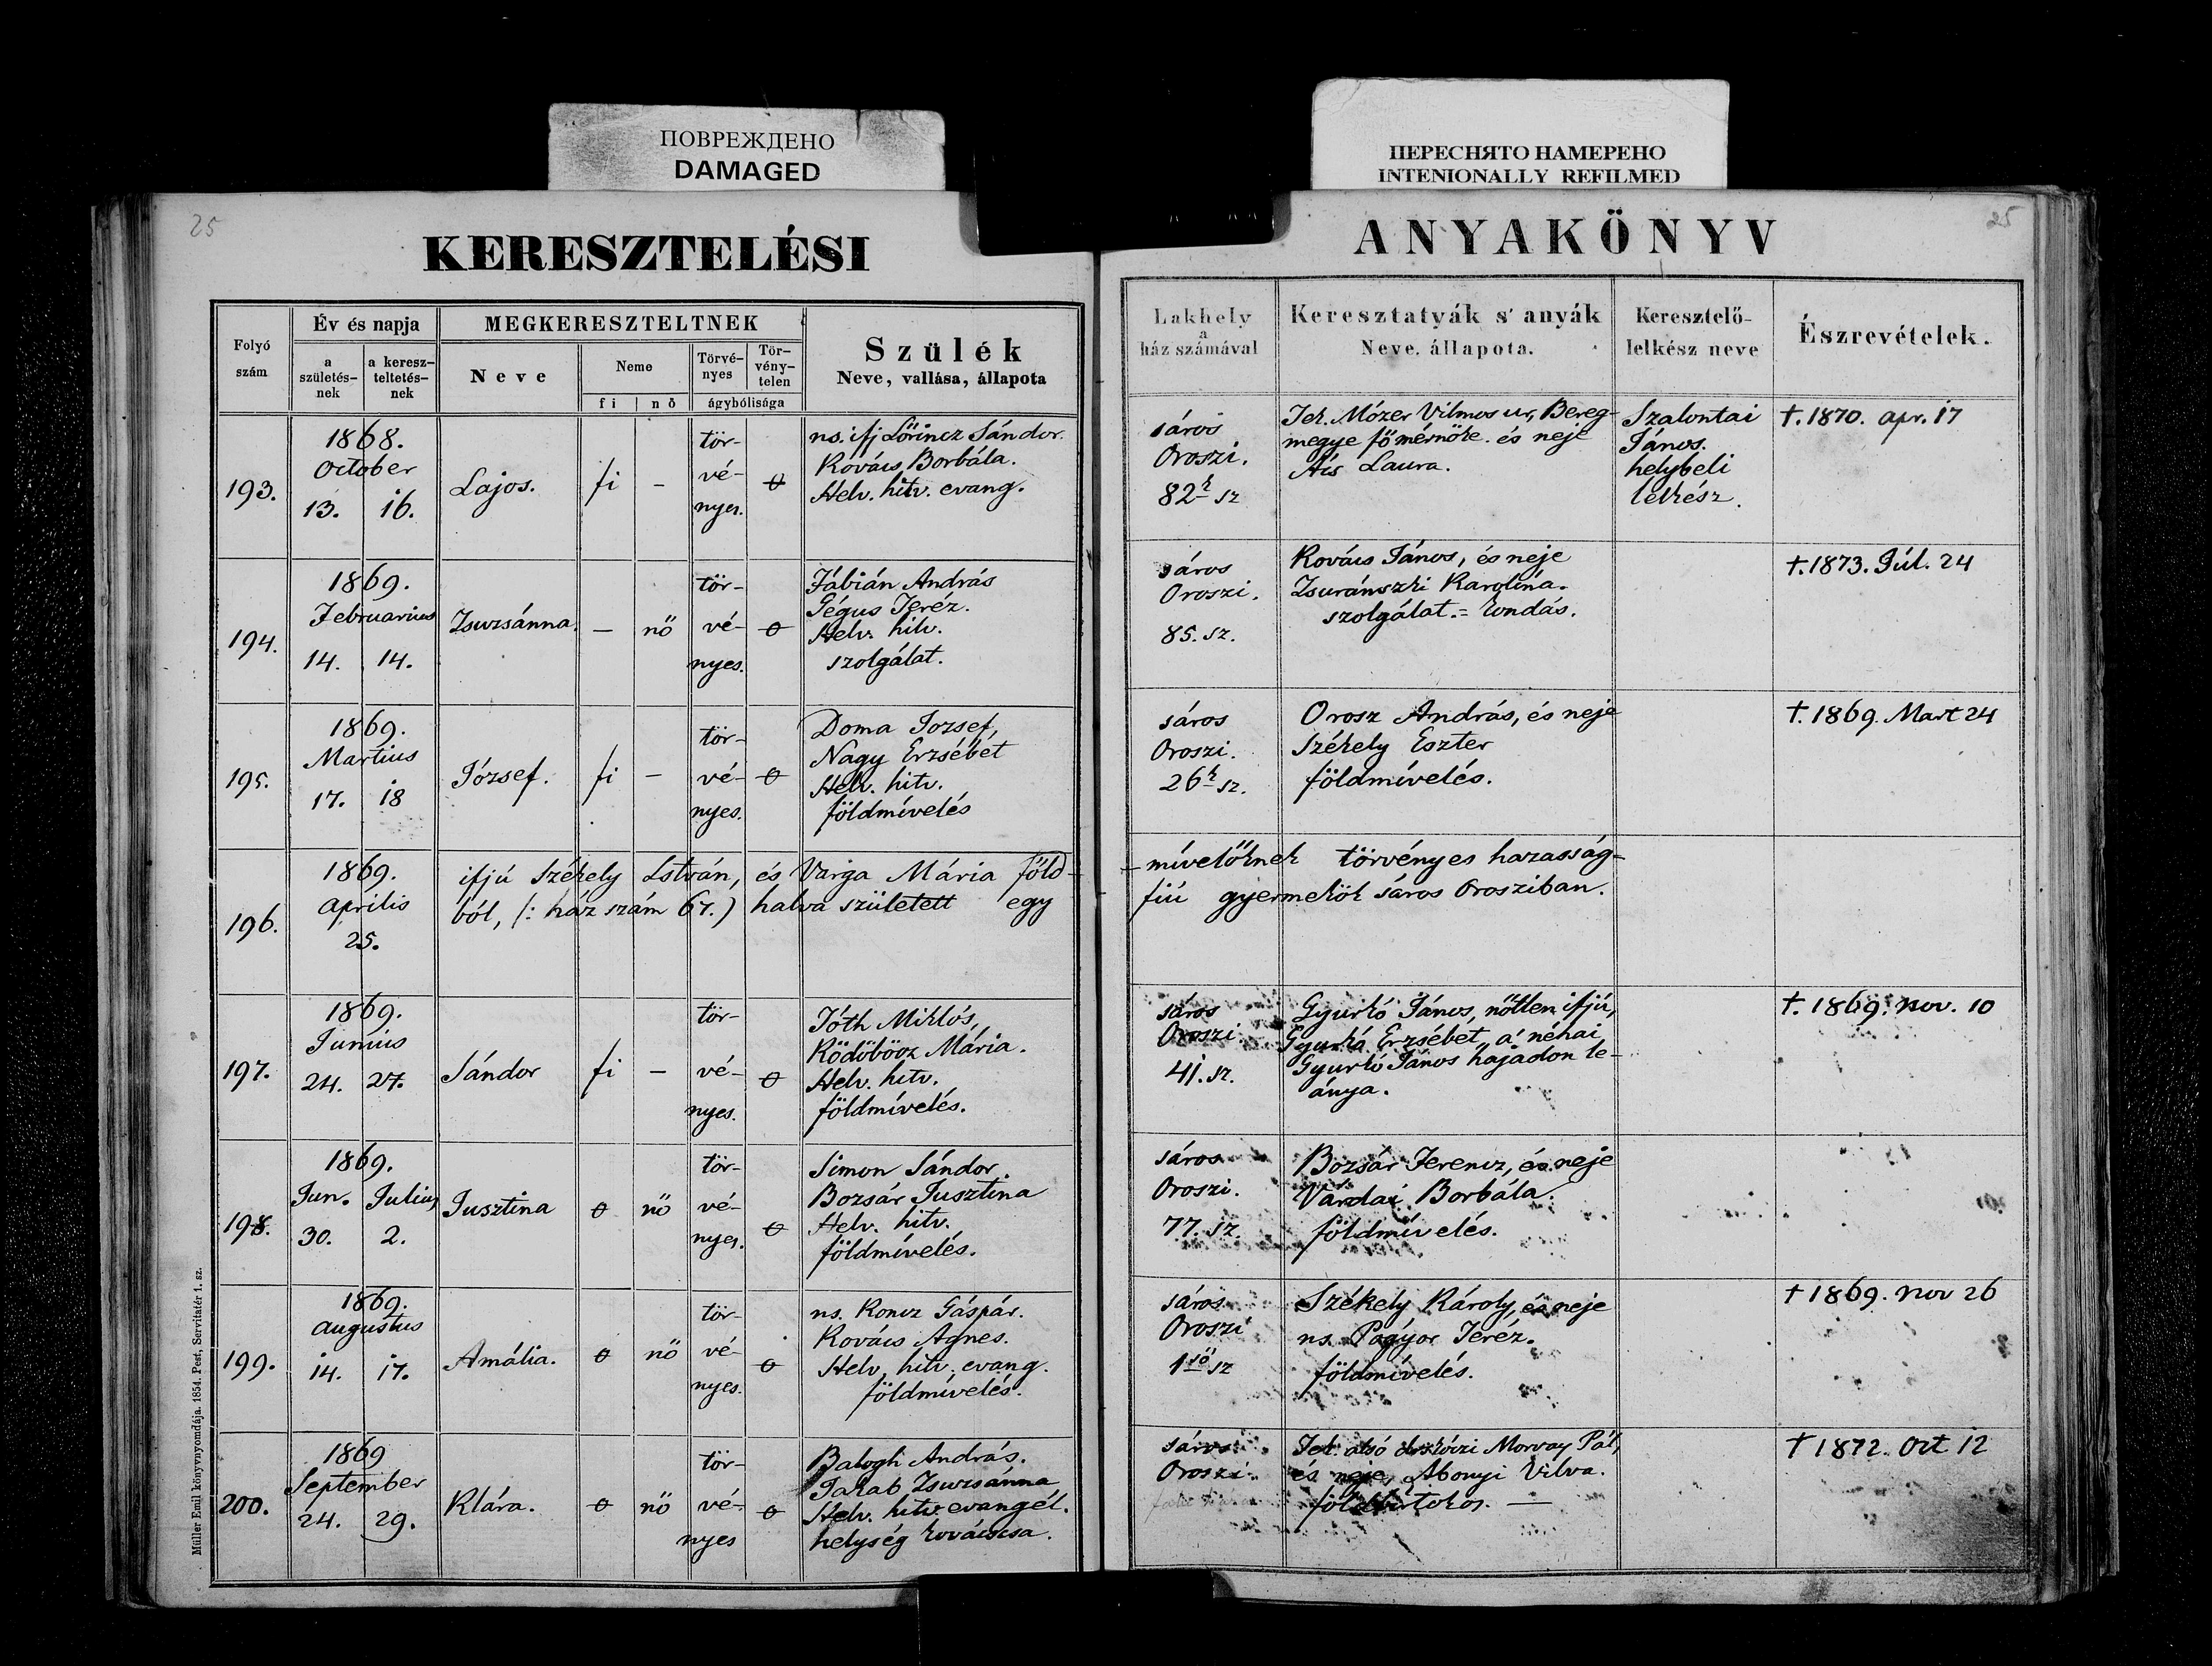 ПОВРЕЖДЕНО
DAMAGED
ПЕРЕСНЯТО НАМЕРЕНО
INTENIONALLY REFILMED
25
25
KERESZTELÉSI
ANYAKÖNYV
Folyó szám
Év és napja
a születés-nek
a keresz-teltetés-nek
MEGKERESZTELTNEK
Neve
Neme
fi
nő
Törvé-nyes
Tör-vény-telen
ágybólisága
Szülék
Neve, vallása, állapota
Lakhely
a
ház számával
Keresztatyák s' anyák
Neve, állapota.
Keresztelő-
lelkész neve
Észrevételek.
193.
1868.
October
13. 16.
Lajos.
fi
-
tör-
vé-
nyes.
o
ns. ifj Lőrincz Sándor.
Kovács Borbála.
Helv. hitv. evang.
sáros
Oroszi.
82k sz
Tek. Mózer Vilmos ur, Bereg-
megye főmérnöke. és neje
Laura.
Szalontai
János.
helybeli
lelkész.
†. 1870. apr. 17
194.
1869.
Februarius
14. 14.
Zsuzsánna.
-
nő
tör-
vé-
nyes.
o
Fábián András
Gégus Teréz.
Helv. hitv.
szolgálat.
sáros
Oroszi.
85. sz.
Kovács János, és neje
Zsuránszki Karolina.
szolgálat.= kondás.
†. 1873. Júl. 24
195.
1869.
Martius
17. 18
József.
fi
-
tör-
vé-
nyes.
o
Doma Jozsef,
Nagy Erzsébet
Helv. hitv.
földmívelés
sáros
Oroszi.
26k sz.
Orosz András, és neje
Székely Eszter
földmívelés.
†. 1869. Mart 24
196.
1869.
aprilis
25.
ifjú Székely István, és Varga Mária föld-
-mívelőknek törvényes hazasság-
ból, (: ház szám 67.) halva született egy
fiú gyermekök sáros Orosziban.
197.
1869.
Junius
24. 27.
Sándor
fi
-
tör-
vé-
nyes.
o
Tóth Miklós,
Ködöböcz Mária.
Helv. hitv.
földmívelés.
sáros
Oroszi
41. sz.
Gyurkó János, nőtlen ifjú,
Gyurkó Erzsébet, a' néhai
Gyurkó János hajadon le-
ánya.
†. 1869. nov. 10
198.
1869.
Jun. Julius
30. 2.
Jusztina
o
nő
tör-
vé-
nyes.
o
Simon Sándor.
Bozsár Jusztina
Helv. hitv.
földmívelés.
sáros
Oroszi.
77. sz.
Bozsár Ferencz, és neje
Várdai Borbála.
földmívelés.
199.
1869.
augustus
14. 17.
Amália.
o
nő
tör-
vé-
nyes.
o
ns. Koncz Gáspár.
Kovács Agnes.
Helv. hitv. evang.
földmívelés.
sáros
Oroszi
1ső sz
Székely Károly, és neje
ns. Pogyor Teréz.
földmívelés.
† 1869. nov 26
200.
1869
September
24. 29.
Klára.
o
nő
tör-
vé-
nyes
o
Balogh András.
Jakab Zsuzsánna
Helv. hitv. evangél.
helység kovácsa.
sáros
Oroszi.
Tek. alsó Morvay Pál,
és neje, Abonyi Vilva.
földbirtokos. —
† 1872. Oct 12
Müller Emil könyvnyomdája. 1854. Pest, Servitatér 1. sz.